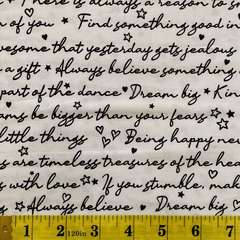 There is always a reason to sm
of you Find something good in
wesome that yesterday gets jealous
a gift Always believe something
part of the dance Dream big Kin
ams be bigger than your fears
little things Being happy nev
es are timeless treasures of the hear
s with love If you stumble, mak
Always believe Dream big
1 2 120in 3 4 5 6 7